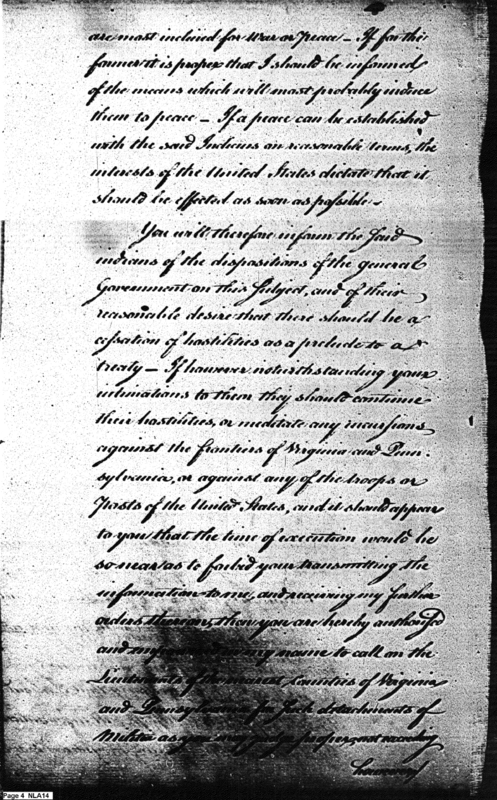 are most inclined for war or peace – If for the
former it is proper that I should be informed
of the means which will most probably induce
them to peace – If a peace can be established
with the said Indians on reasonable terms, the
interests of the United States dictate that it
should be effected as soon as possible –
You will therefore inform the said
indians of the dispositions of the general
Government on this subject, and of their
reasonable desire that there should be a
cessation of hostilities as a prelude to a
treaty – If however notwithstanding your
intimations to them they should continue
their hostilities, or meditate any incursions
against the frontiers of Virginia and Penn-
sylvania, or against any of the troops or
Posts of the United States, and it should appear
to you that the time of execution would be
so near as to forbid your transmitting the
information to me, and receiving my further
orders thereon, then you are hereby authorised
and empowered in my name to call on the
Lieutenants of the nearest Counties of Virginia
and Pennsylvania for such detachments of
Militia as you may judge proper, not exceeding
however
Page 4 NLA14